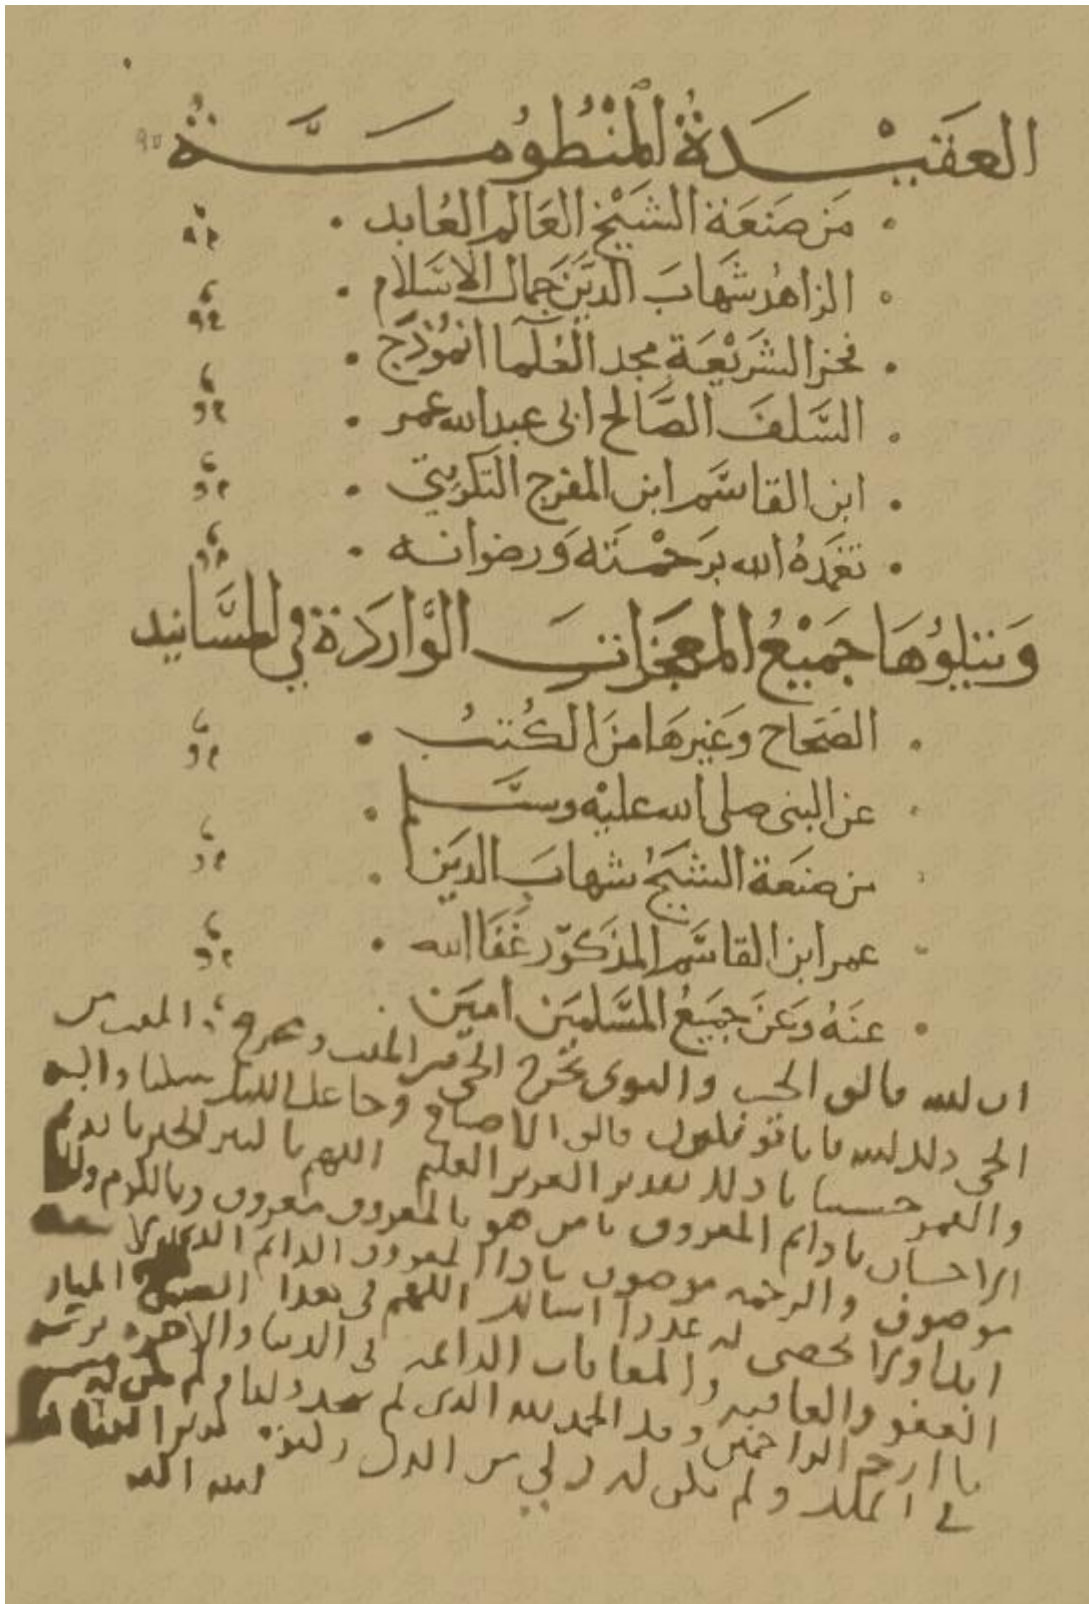 العَقيْدَةُ المنْظُومَةُ
مَن صَنعَة الشيْخ العَالم العُابد
الزاهدُ شهَابَ الديَن جَمال الاسَلام
فخر الشريْعَة مجد العُلمآ انمُوذَج
السَّلفَ الصَّالح ابى عبد الله عمر
ابن القاسَّم ابن المفرج التكريتي
تغمدهُ الله برَحمْتَه وَرضوانه
وَيتلوُهَا جَميْعُ المعجزات الوَّاردَة في المسَّانيد
الصَحاح وَغيرهَا منَ الكُتبُ
عن النبى صلى الله عليْه وسَّلم
من صنعَة الشيَخُ شهابَ الديَن
عمر ابن القاسَّم المذكوّر غَفَا الله
عنَهُ وَعَن جَميَعُ المسَّلميَن اميَن
ان الله فالق الحب والنوى يخرج الحي من الميت ومخرج الميت من
الحي ذلك الله فانا توفكون فالق الاصباح وجاعل الليل سكنا والشمس
والقمر حسبانا ذلك تقدير العزيز العليم اللهم يا كثير الخير يا دايم
الاحسان يا دايم المعروف يا من هو بالمعروف معروف وبالكرم
موصوف والرحمه موصوف يا ذا المعروف الدائم الذي لا
ابدا ولا يحصى له عددا اسالك اللهم في هذا
العفو والعافيه والمعافات الدائمه في الدنيا والاخره برحمتك
يا ارحم الراحمين وقل الحمد لله الذي لم يتخذ ولدا ولم يكن له شريك
في الملك ولم يكن له ولي من الذل وكبره تكبيرا
الله الله